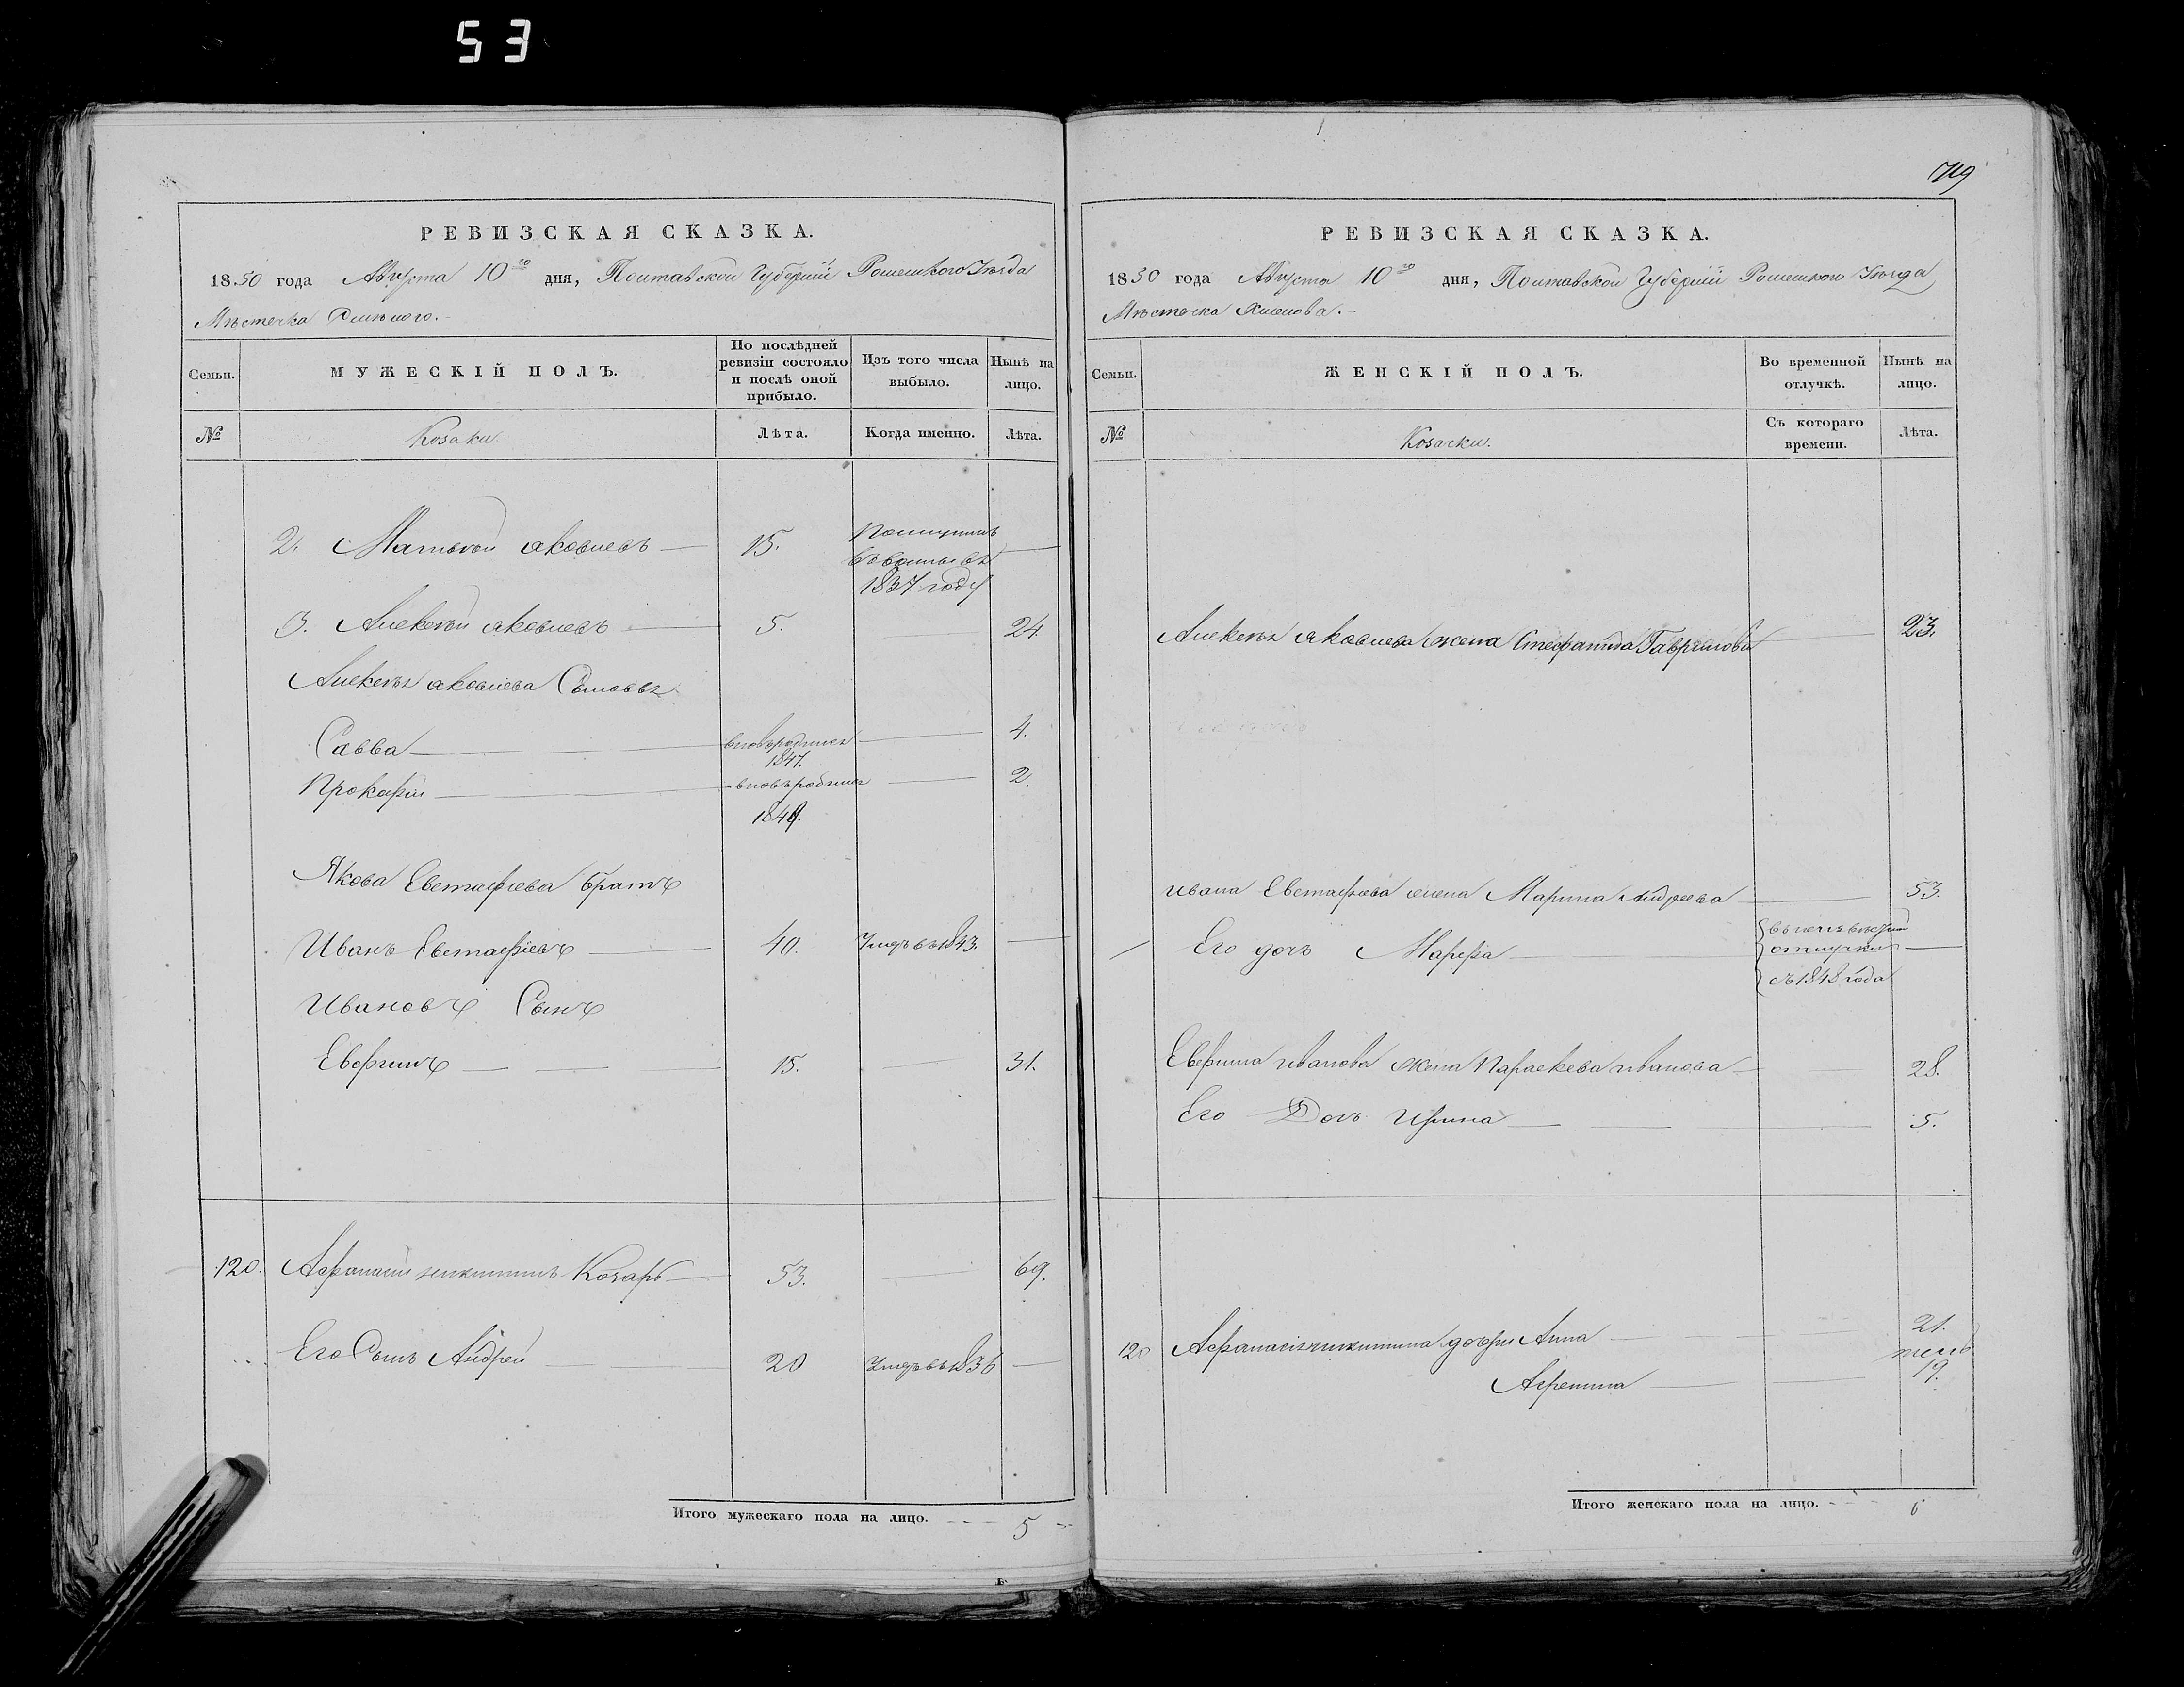 53
719
РЕВИЗСКАЯ СКАЗКА.
1850 года Августа 10го дня, Полтавской Губернiи Роменского Уѣзда
Мѣстечка
Семьи.
МУЖЕСКІЙ ПОЛЪ.
По послѣдней ревизіи состояло и послѣ оной прибыло.
Изъ того числа выбыло.
Нынѣ на лицо.
№
Козаки.
Лѣта.
Когда именно.
Лѣта.
2. Матвѣй Яковлевъ 15. Поступилъ
1837 году
3. Алексѣй Яковлевъ 5. 24.
Алексѣя Яковлева Сыновья
Савва вновьродился 4.
1847.
Прокофій вновьродился 2.
1849.
Якова Евстафіева братъ
Иванъ Евстафіевъ 40. Умеръ въ 1843.
Ивановъ Сынъ
15. 31.
120. Афанасій Никитинъ Козарь 53. 69.
Его Сынъ Андрей 20 Умеръ въ 1836
Итого мужескаго пола на лицо. 5
РЕВИЗСКАЯ СКАЗКА.
1850 года Августа 10го дня, Полтавской Губерніи Роменского Уѣзда
Мѣстечка
Семьи.
ЖЕНСКІЙ ПОЛЪ.
Во временной отлучкѣ.
Нынѣ на лицо.
№
Козачки.
Съ котораго времени.
Лѣта.
Алексѣя Яковлева жена Стефанида Гаврилова 23.
Ивана Евстафіева жена Марина Андреева 53.
Его дочь Марфа
отлучки
съ 1848 года
Иванова жена Параскева Иванова 28.
Его Дочь Ирина 5.
120 Афанасія Никитина дочери Анна 21.
19.
Итого женскаго пола на лицо. 6